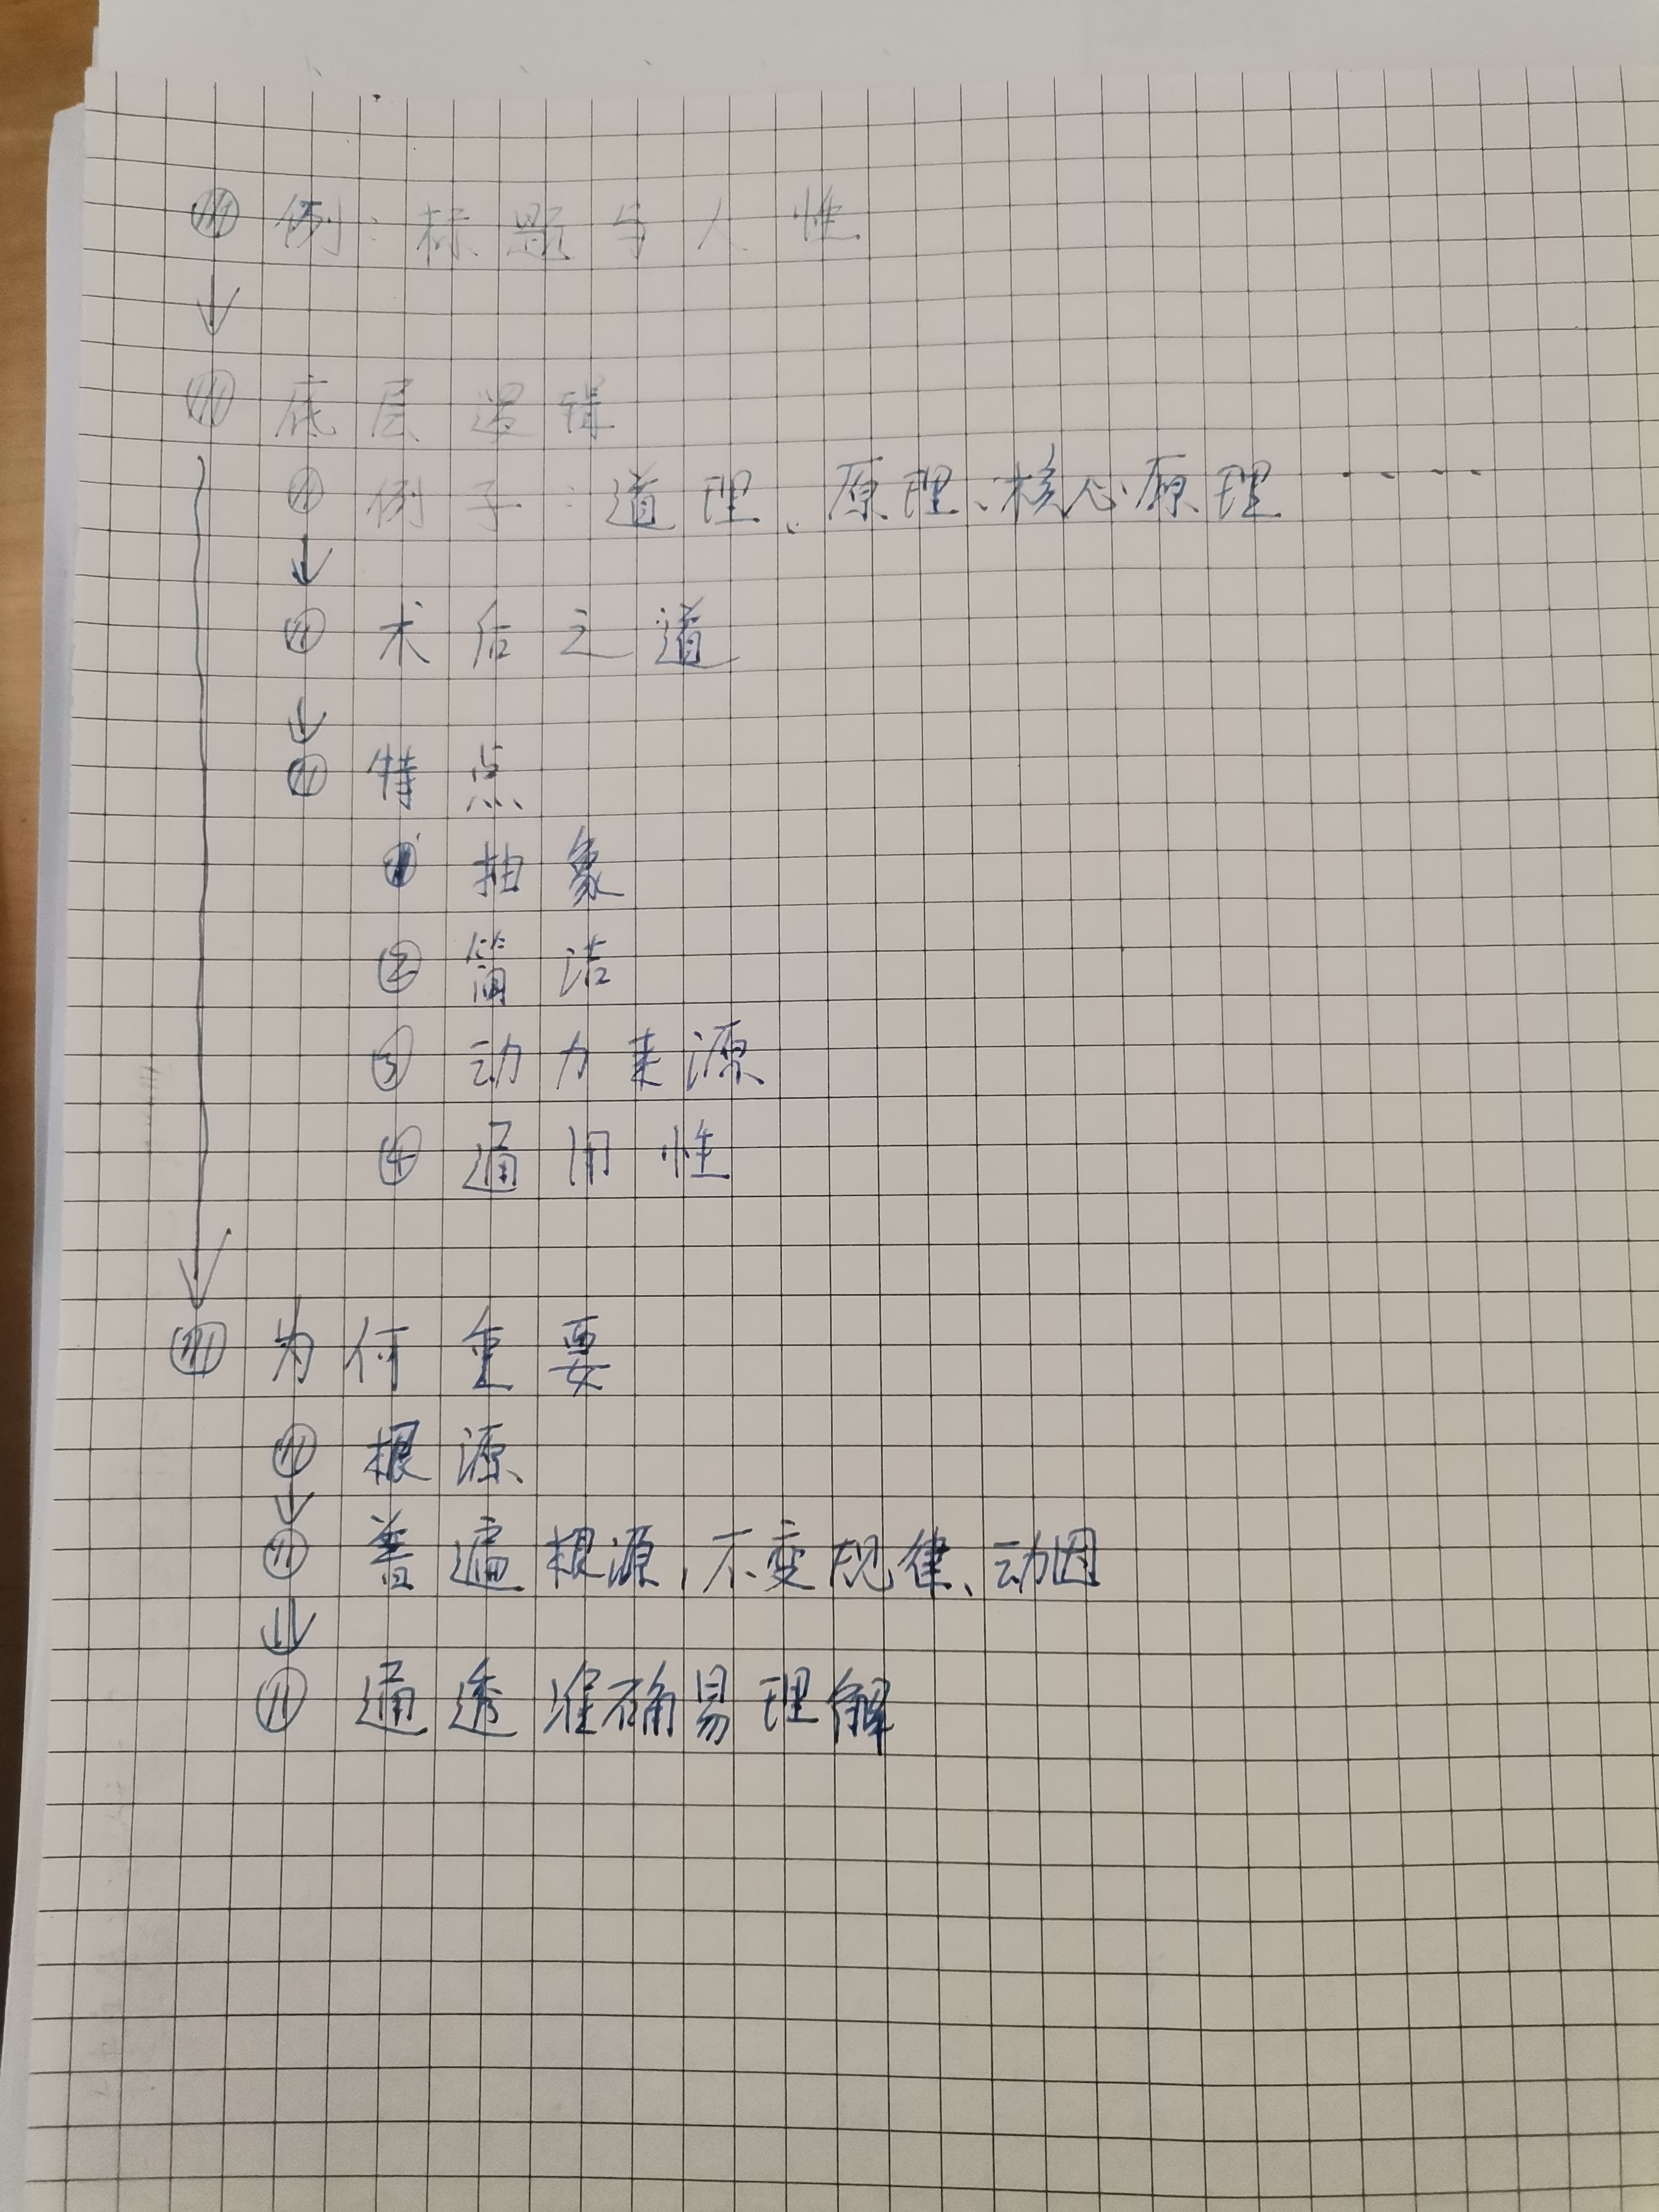 例：标题与人性
底层逻辑
例子：道理、原理、核心原理……
术后之道
特点
① 抽象
② 简洁
③ 动力来源
④ 通用性
为何重要
根源
普遍根源，不变规律、动因
通透准确易理解